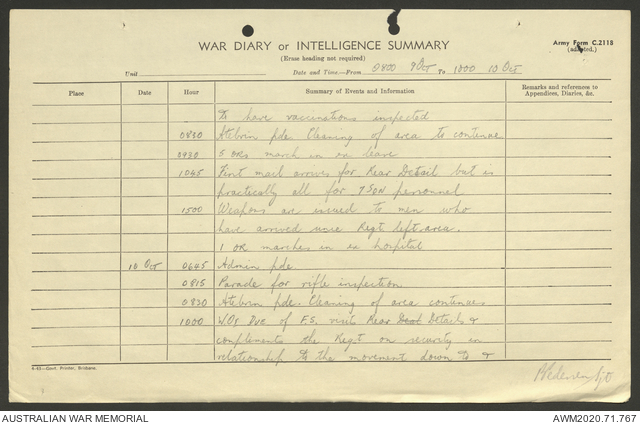 WAR DIARY or INTELLIGENCE SUMMARY
(Erase heading not required)
Army Form C.2118
(adapted.)
Unit
Date and Time—From 0800 9 Oct To 1000 10 Oct
Place Date Hour Summary of Events and Information Remarks and references to Appendices, Diaries, &c.
to have vaccinations inspected
0830 Atebrin pde. Cleaning of area to continue
0930 5 ORs march in ex leave
1045 First mail arrives for Rear Detail but is
practically all for 7SQN personnel
1500 Weapons are issued to men who
have arrived since Regt left area.
1 OR marches in ex hospital
10 Oct 0645 Admin pde
0815 Parade for rifle inspection
0830 Atebrin pde. Cleaning of area continues
1000 of F.S. visit Rear Details &
compliments the Regt on security in
relationship to the movement down to &
4-43—Govt. Printer, Brisbane.
AUSTRALIAN WAR MEMORIAL
AWM2020.71.767